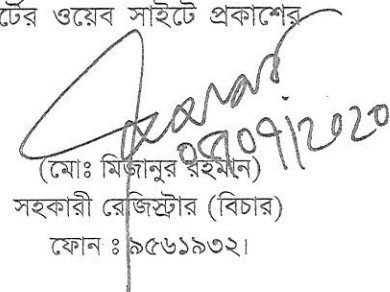 র্টের ওয়েব সাইটে প্রকাশের
০৫/০৭/2020
(মোঃ মিজানুর রহমান)
সহকারী রেজিস্ট্রার (বিচার)
ফোন ঃ ৯৫৬১৯৩২।